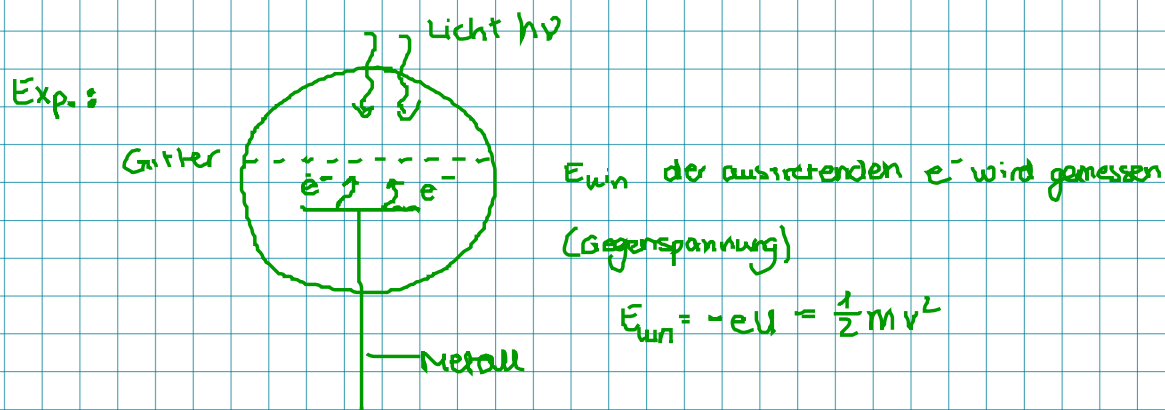 Licht hν
Exp.:
Gitter
e⁻ e⁻
E_kin der austretenden e⁻ wird gemessen
(Gegenspannung)
E_kin = -eU = ½mv²
Metall